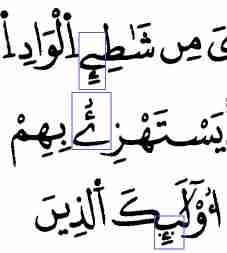 يَ مِن شَٰطِےِٕ اِ۬لْوَادِ اِ۬
يَسْتَهْزِۓُ بِهِمْ
أُوْلَٰٓئِكَ اَ۬لذِينَ